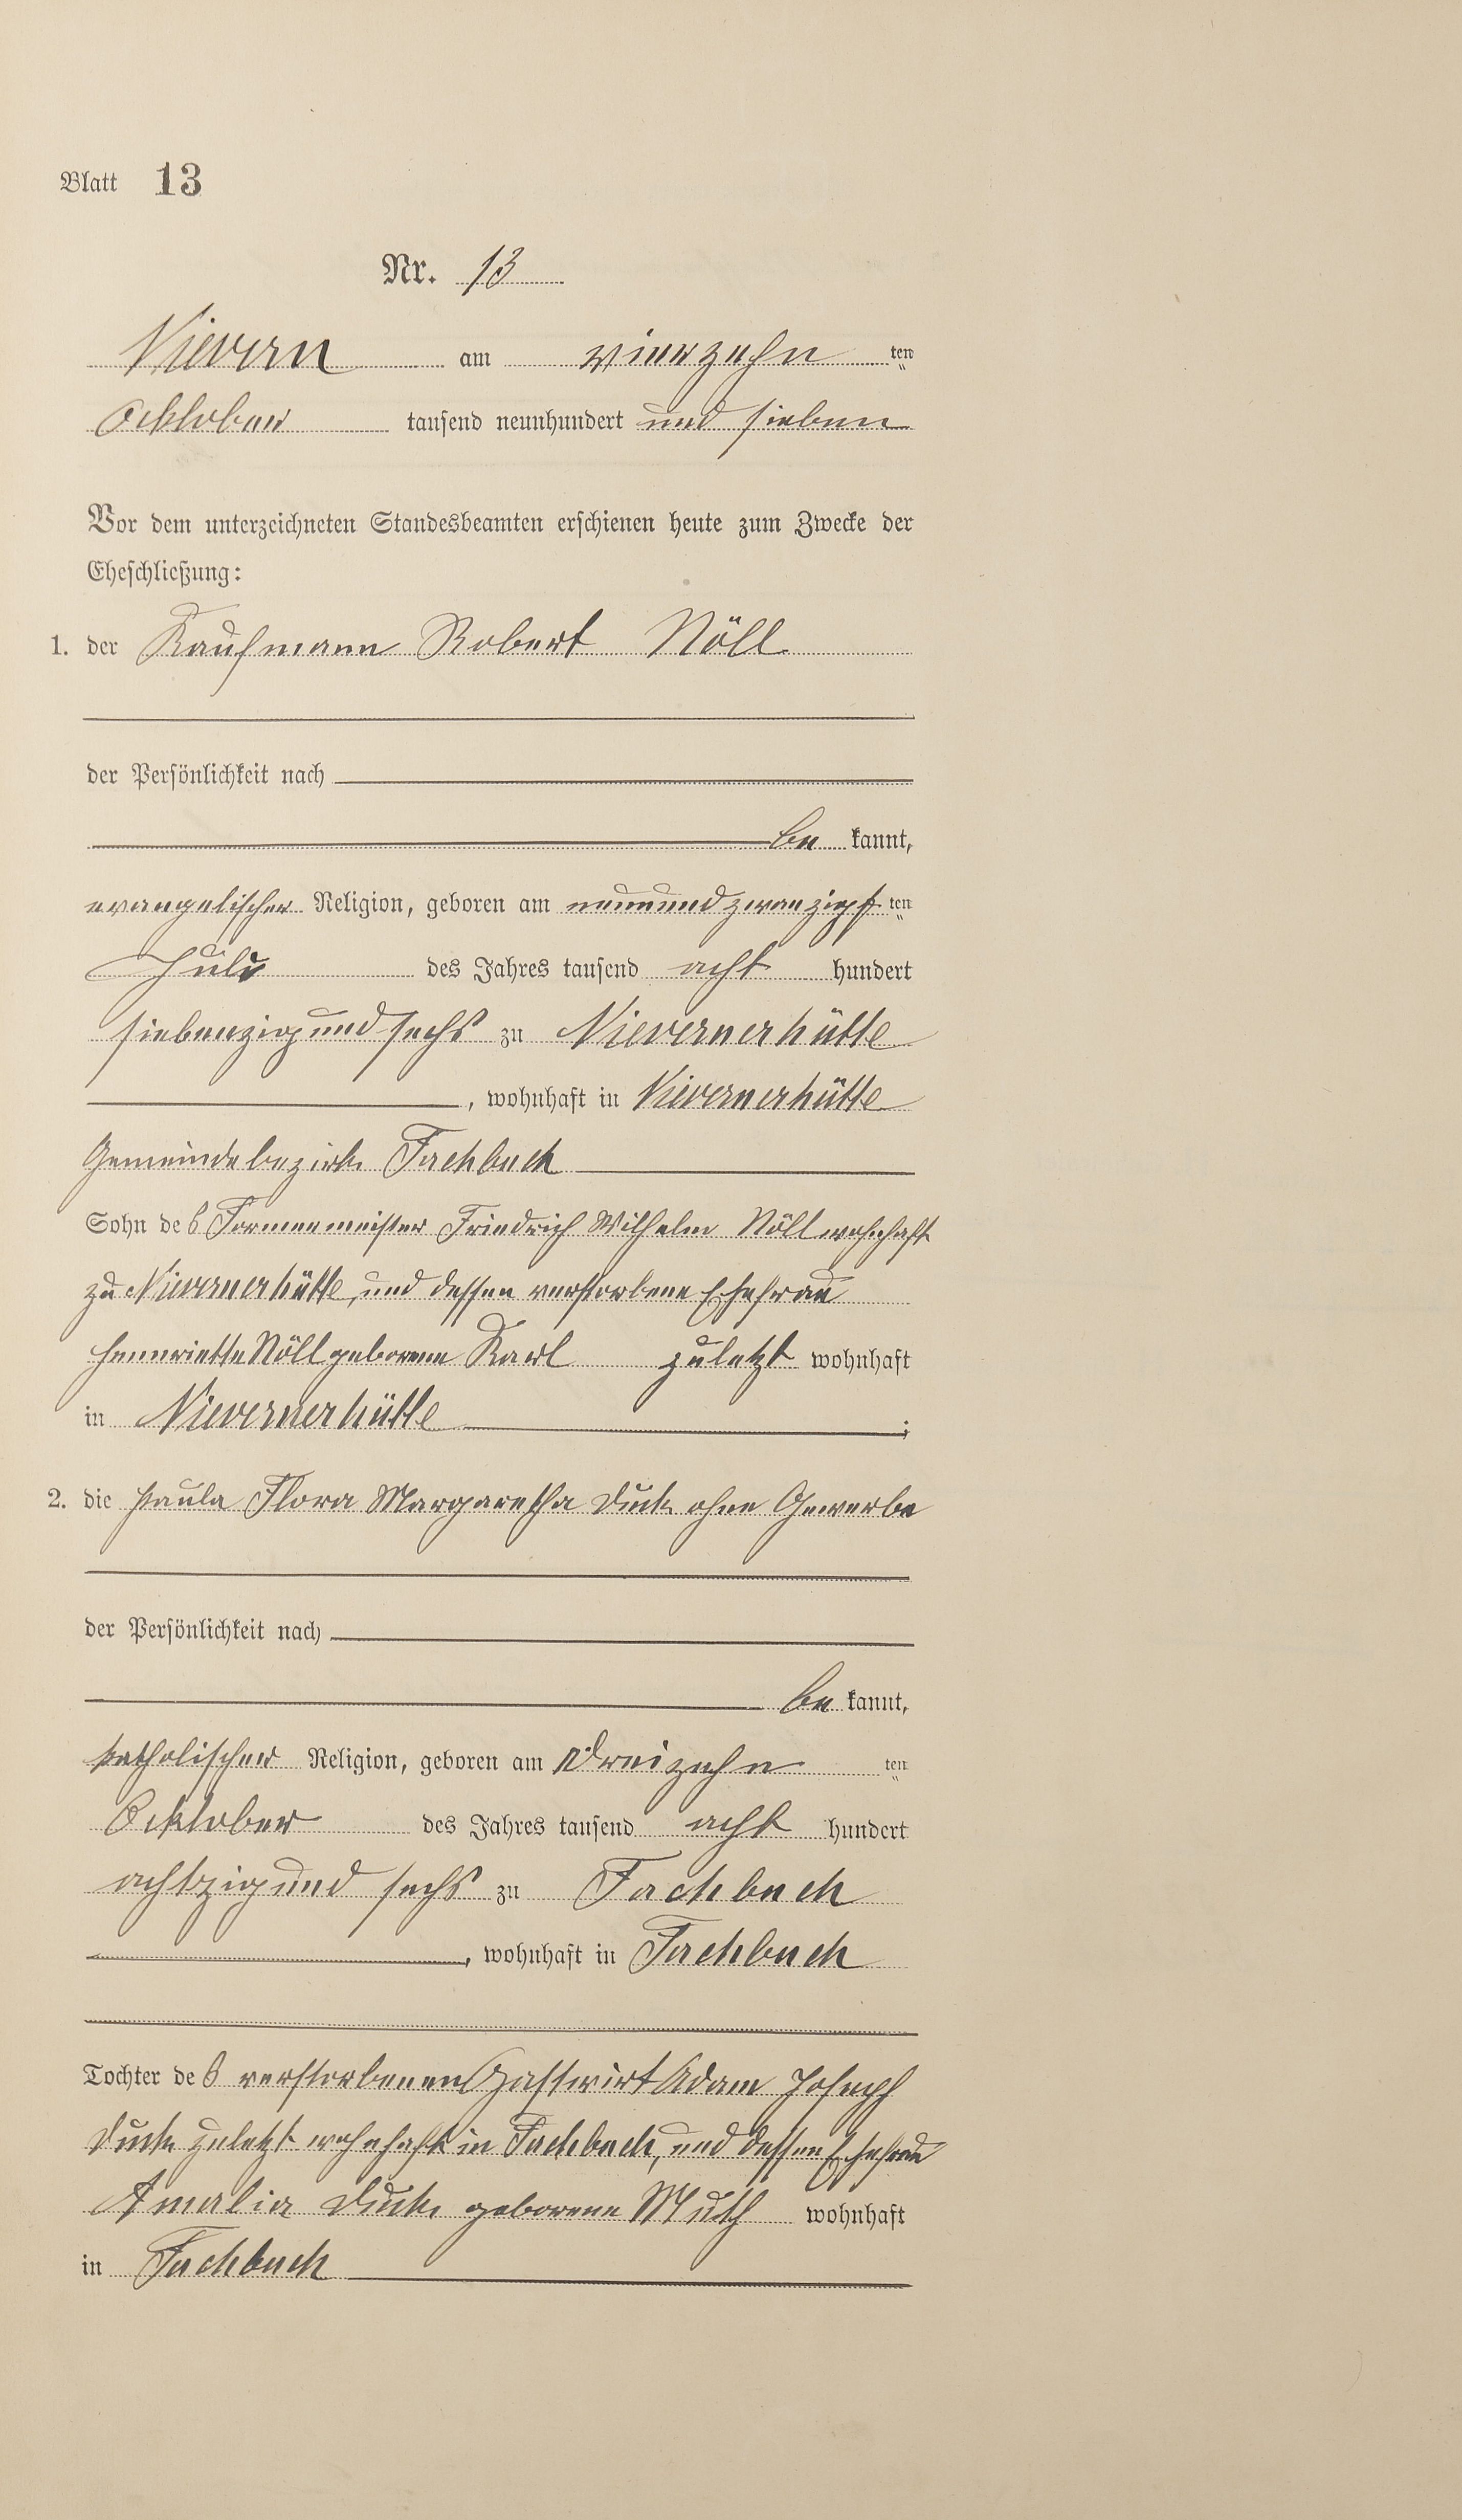 Blatt 13
Nr. 13
Nievern am vierzehn ten
Ocktober tausend neunhundert und sieben
Vor dem unterzeichneten Standesbeamten erschienen heute zum Zwecke der
Eheschließung:
1. der Kaufmann Robert Nöll
der Persönlichkeit nach
be kannt,
evangelischer Religion, geboren am neunundzwanzigst ten
Juli des Jahres tausend acht hundert
siebenzigund sechs zu Nievernerhütte
, wohnhaft in Nievernerhütte
Gemeindebezirk Fachbach
Sohn des Formermeister Friedrich Wilhelm Nöll wohnhaft
zu Nievernerhütte, und dessen verstorbene Ehefrau
Hennriette Nöll geborene Karl zuletzt wohnhaft
in Nievernerhütte ;
2. die Paula Flora Margaretha Duck ohne Gewerbe
der Persönlichkeit nach
be kannt,
katholischer Religion, geboren am dreizehn ten
Ocktober des Jahres tausend acht hundert
achtzigund sechs zu Fachbach
, wohnhaft in Fachbach
Tochter des verstorbenen Gastwirt Adam Joseph
Duck zuletzt wohnhaft in Fachbach, und dessen Ehefrau
Amalia Duck geborene Muth wohnhaft
in Fachbach